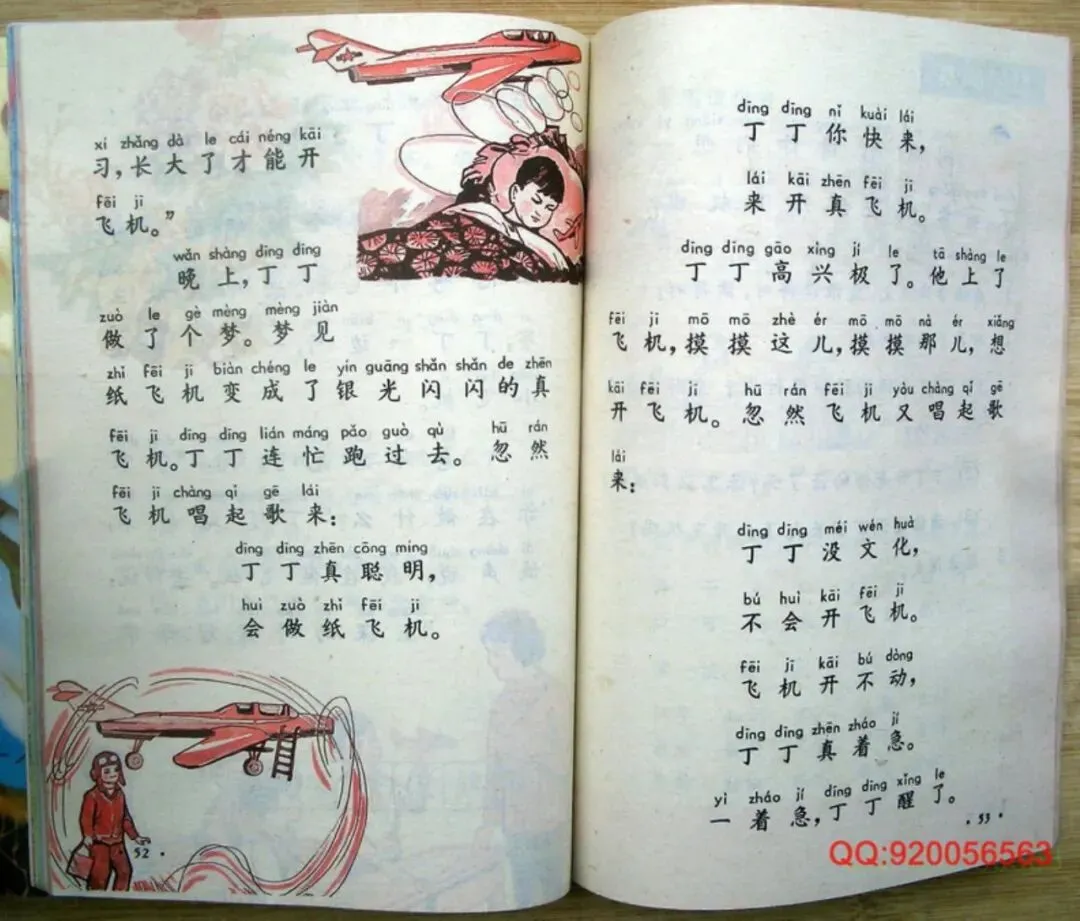 xí zhǎng dà le cái néng kāi
习，长大了才能开
fēi jī
飞机。”
wǎn shàng dīng dīng
晚上，丁丁
zuò le gè mèng mèng jiàn
做了个梦。梦见
zhǐ fēi jī biàn chéng le yín guāng shǎn shǎn de zhēn
纸飞机变成了银光闪闪的真
fēi jī dīng dīng lián máng pǎo guò qù hū rán
飞机。丁丁连忙跑过去。忽然
fēi jī chàng qǐ gē lái
飞机唱起歌来：
dīng dīng zhēn cōng míng
丁丁真聪明，
huì zuò zhǐ fēi jī
会做纸飞机。
52
dīng dīng nǐ kuài lái
丁丁你快来，
lái kāi zhēn fēi jī
来开真飞机。
dīng dīng gāo xìng jí le tā shàng le
丁丁高兴极了。他上了
fēi jī mō mō zhè ér mō mō nà ér xiǎng
飞机，摸摸这儿，摸摸那儿，想
kāi fēi jī hū rán fēi jī yòu chàng qǐ gē
开飞机。忽然飞机又唱起歌
lái
来：
dīng dīng méi wén huà
丁丁没文化，
bú huì kāi fēi jī
不会开飞机。
fēi jī kāi bú dòng
飞机开不动，
dīng dīng zhēn zháo jí
丁丁真着急。
yì zháo jí dīng dīng xǐng le
一着急，丁丁醒了。
·53·
QQ:920056563